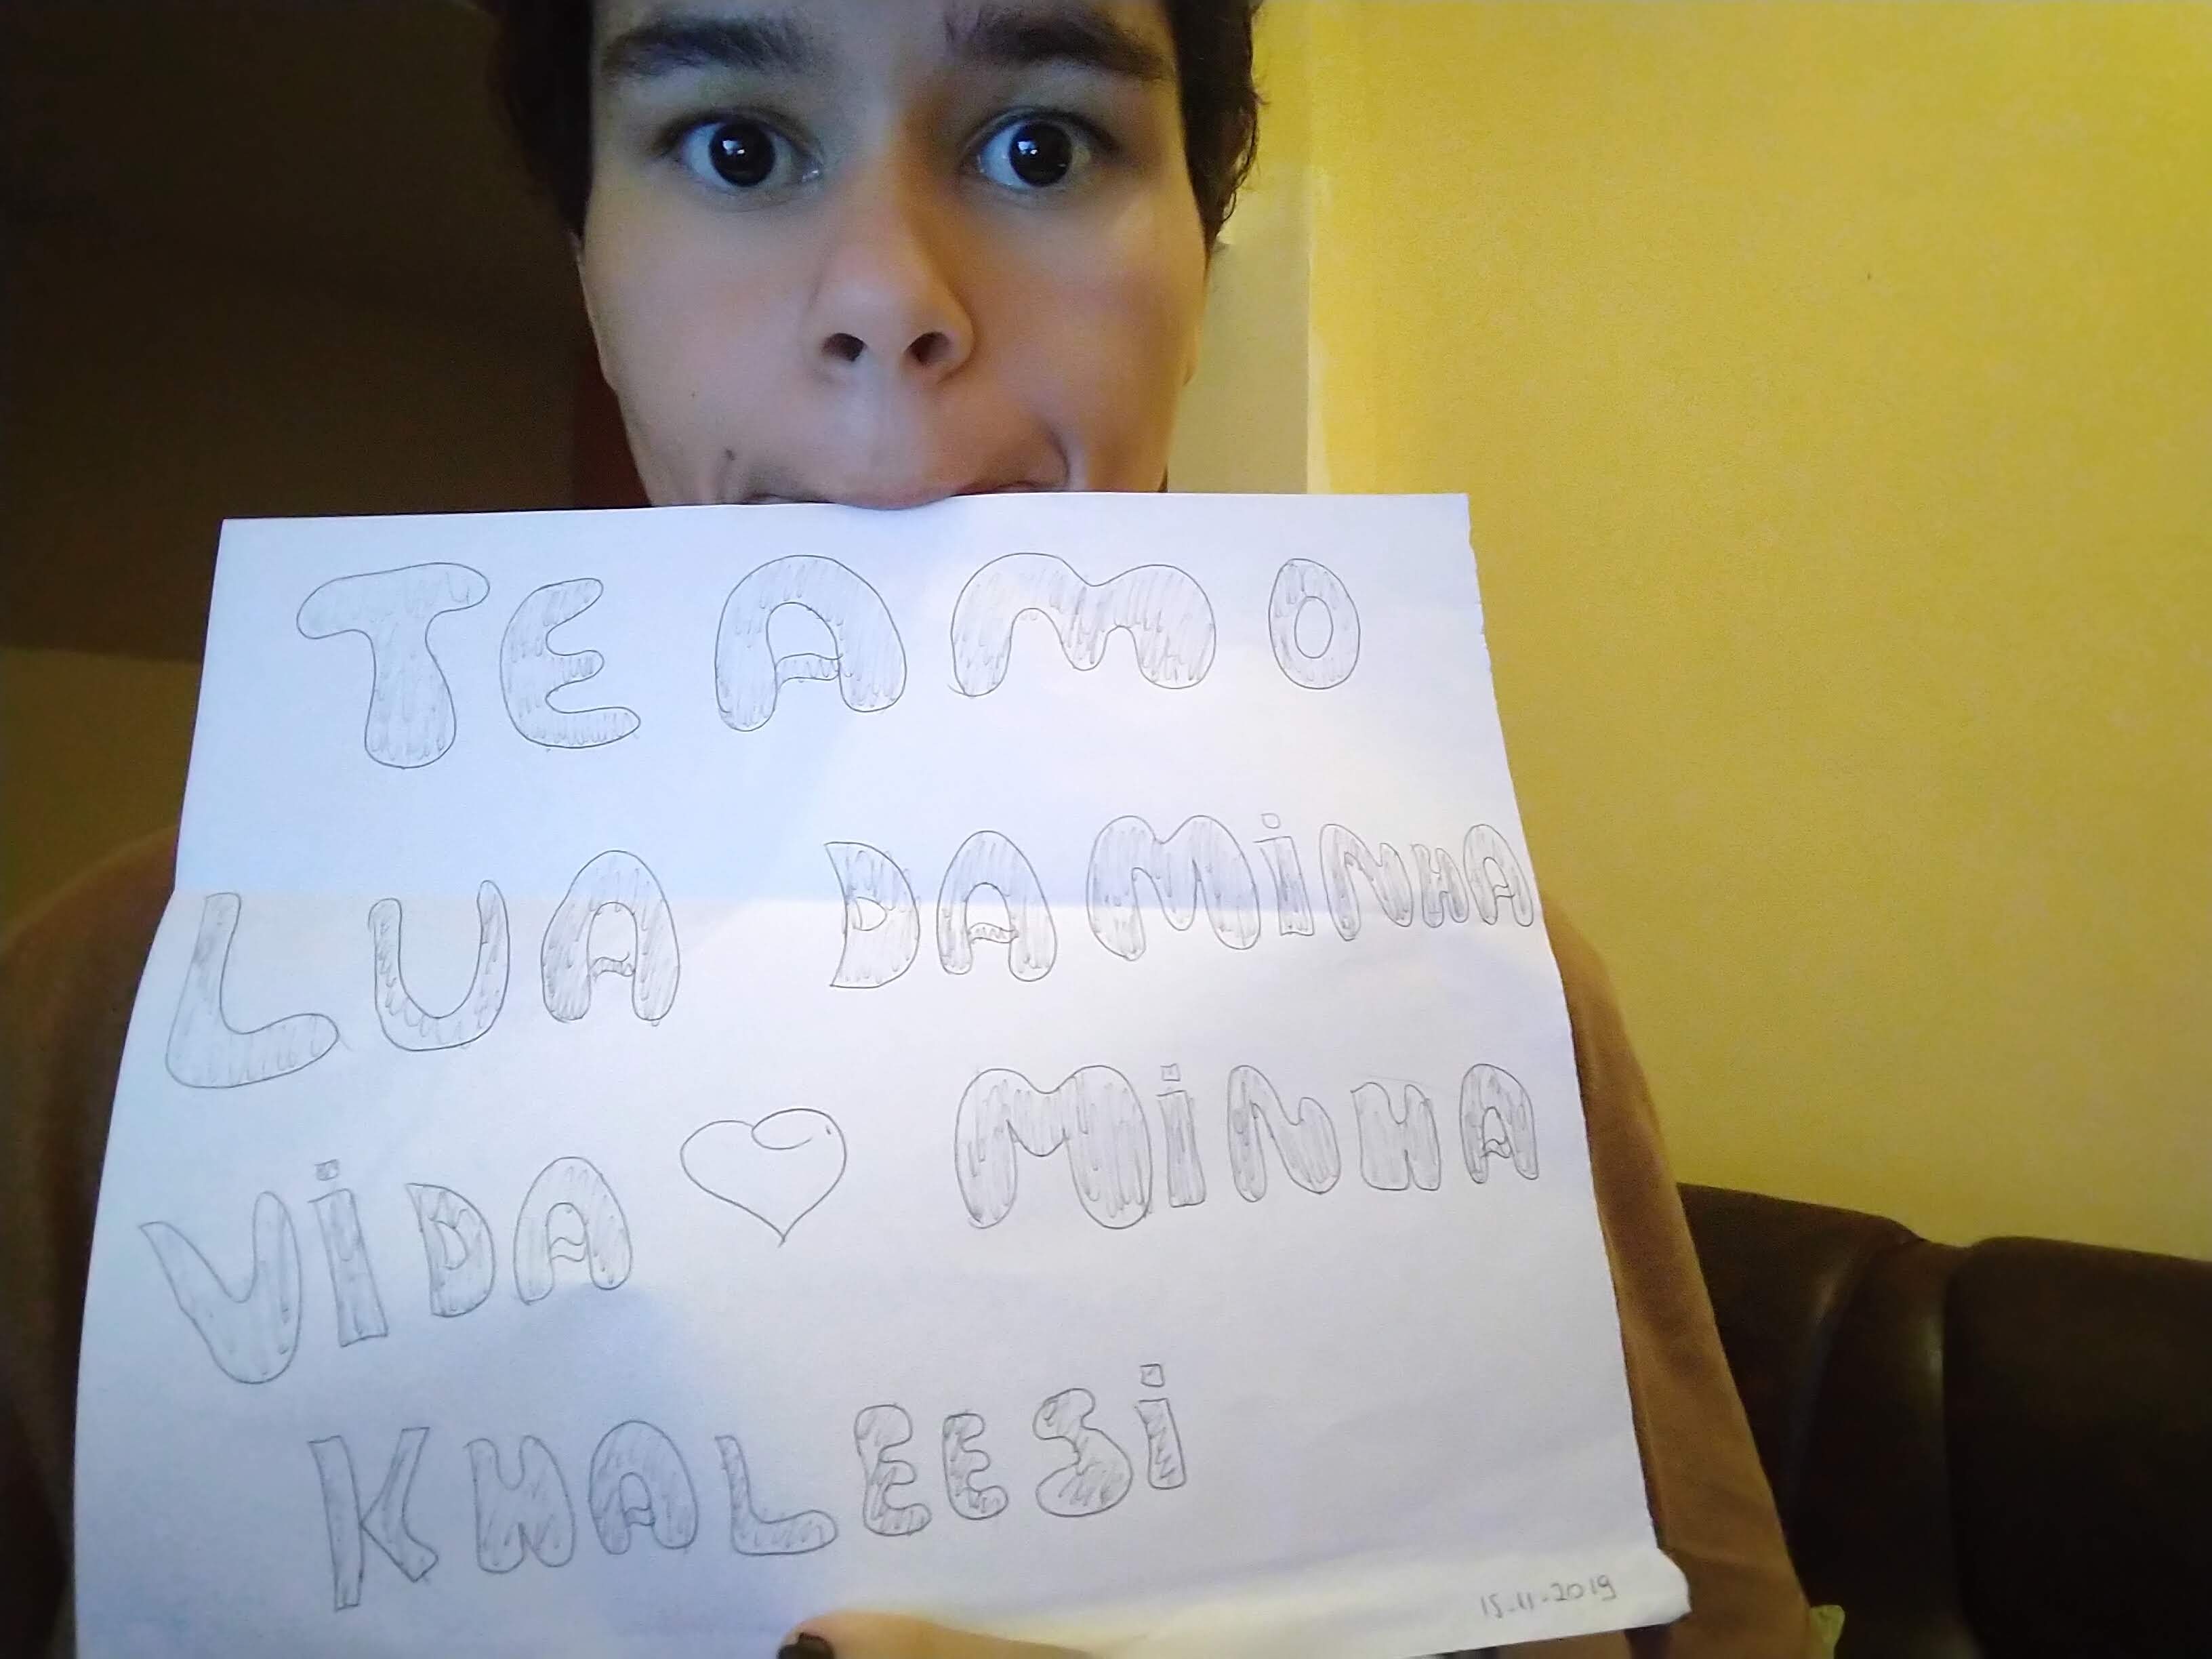 TE AMO
LUA DA MiNHA
ViDA MiNHA
KHALEESi
15-11-2019